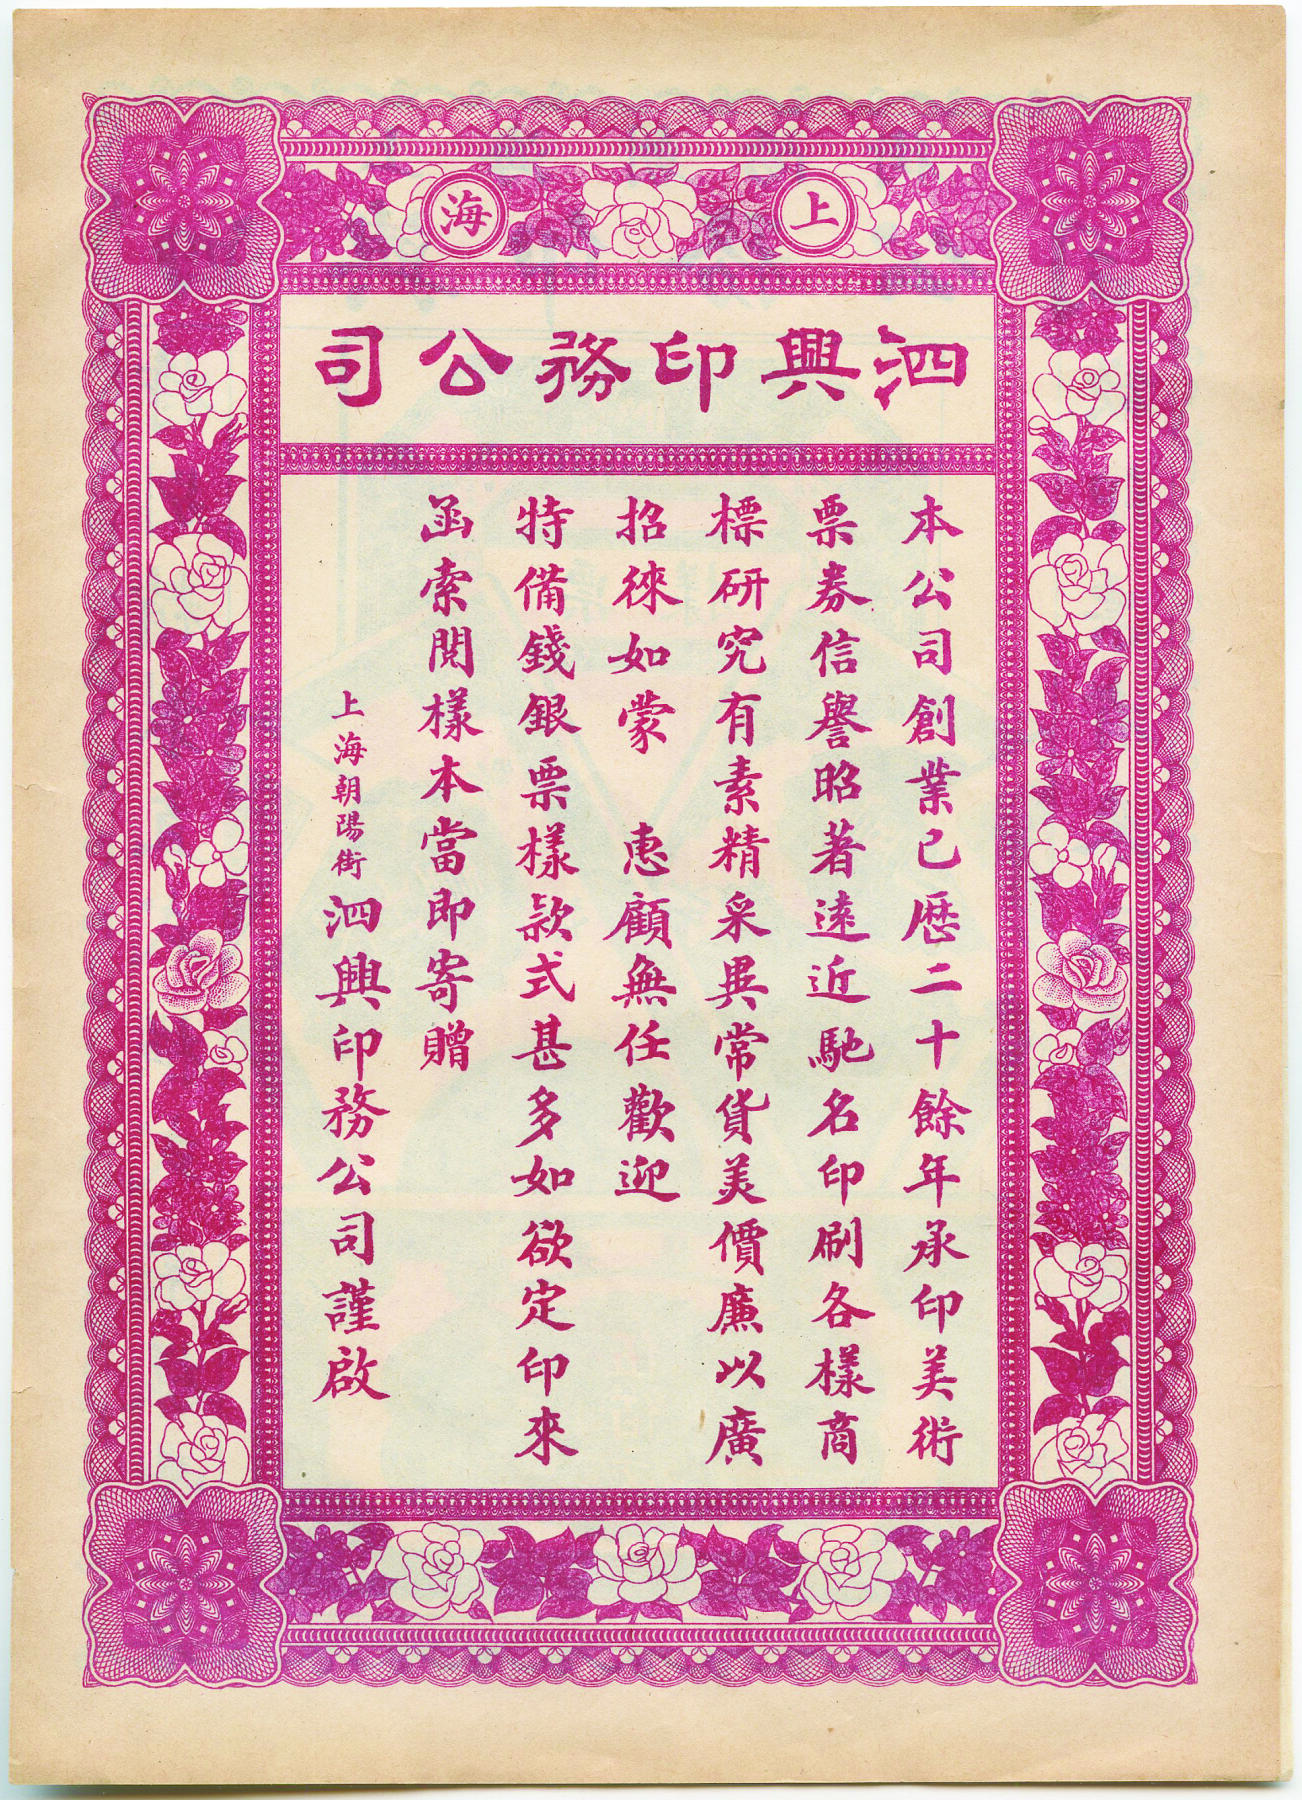 上海
泗興印務公司
本公司創業已歷二十餘年承印美術
票券信譽昭著遠近馳名印刷各樣商
標研究有素精采異常貨美價廉以廣
招徠如蒙　惠顧無任歡迎
特備錢銀票樣款式甚多如欲定印來
函索閱樣本當即寄贈
上海朝陽街泗興印務公司謹啟